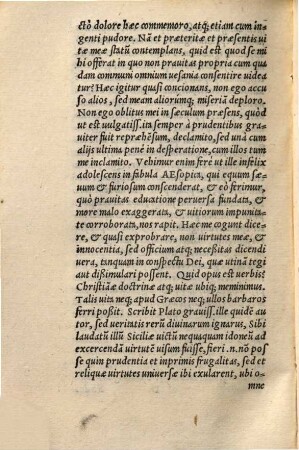 ctò dolore hæc commemoro, atq; etiam cum in-
genti pudore. Nã et præteritæ et præsentis ui
tæ meæ statũ contemplans, quid est quod se mi
hi offerat in quo non prauitas propria cum qua
dam communi omnium uesania consentire uidea
tur? Hæc igitur quasi concionans, non ego accu
so alios, sed meam aliorumq; miseriã deploro.
Non ego oblitus mei in sæculum præsens, quòd
ut est uulgatiss. ita semper à prudentibus gra-
uiter fuit repræhẽsum, declamito, sed unà cum
alijs ultima penè in desperatione, cum illos tum
me inclamito. Vehimur enim ferè ut ille infelix
adolescens in fabula AEsopica, qui equum sæ-
uum & furiosum conscenderat, & eò ferimur,
quò prauitas educatione peruersa fundata, &
more malo exaggerata, & uitiorum impunita-
te corroborata, nos rapit. Hæc me cogunt dice-
re, & quasi exprobrare, non uirtutes meæ, &
innocentia, sed officium atq; necessitas dicendi
uera, tanquam in conspectu Dei, quæ utinã tegi
aut dißimulari possent. Quid opus est uerbis?
Christiãæ doctrinæ atq; uitæ ubiq; meminimus.
Talis uita neq; apud Græcos neq; ullos barbaros
ferri poßit. Scribit Plato grauiss. ille quidẽ au-
tor, ac ueritatis rerũ diuinarum ignarus, Sibi
laudatũ illũ Siciliæ uictũ nequaquam idoneũ ad
excercendã uirtutẽ uisum fuisse, fieri .n. nõ pos
se quin prudentia et inprimis frugalitas, sed et
reliquæ uirtutes uniuersæ ibi exularent, ubi o-
mne